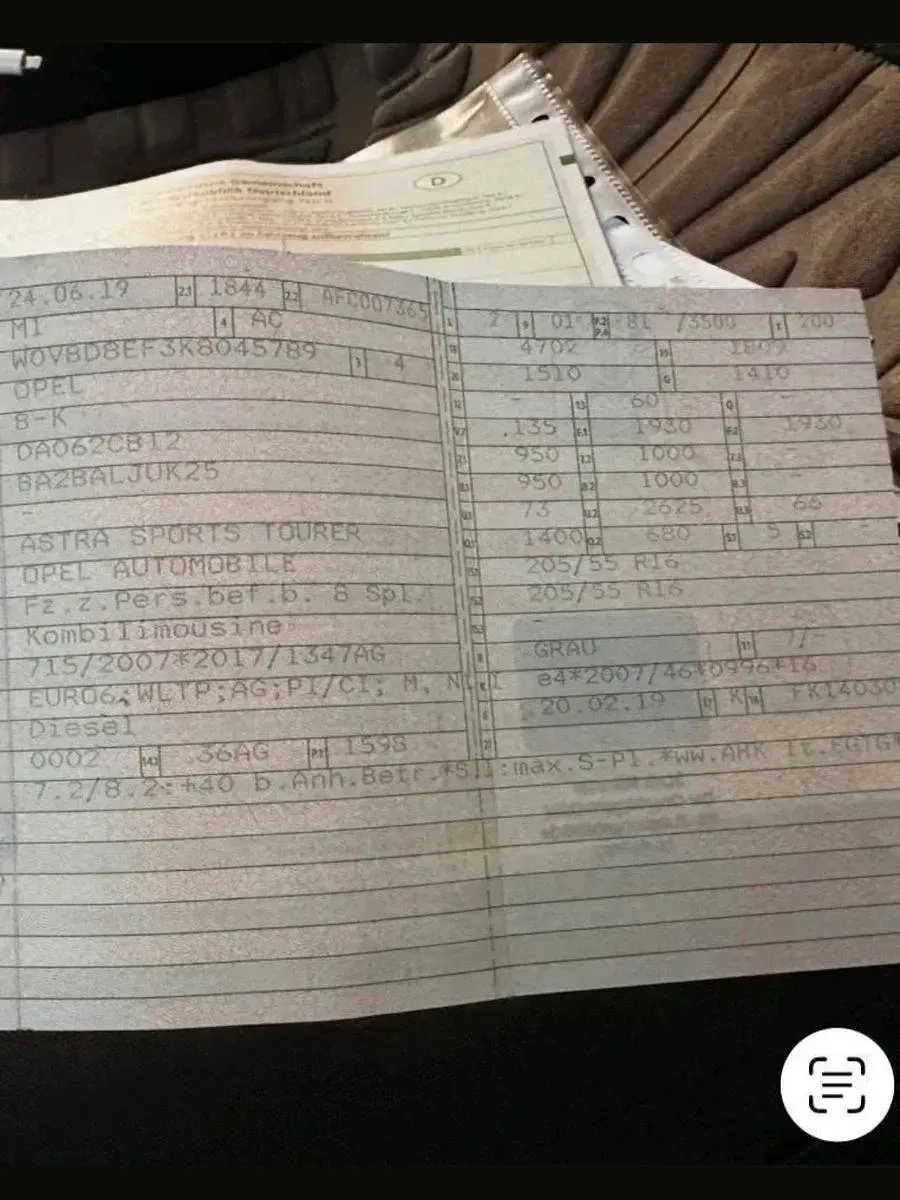 D
24.06.19 2.1 1844 2.2 AFC007365
M1 4 AC
W0VBD8EF3K8045789 3 4
OPEL
B-K
DA062CB12
BA2BALJUK25
-
ASTRA SPORTS TOURER
OPEL AUTOMOBILE
Fz.z.Pers.bef.b. 8 Spl.
Kombilimousine
715/2007*2017/1347AG
EURO6;WLTP;AG;PI/CI; M, N1 I
Diesel
0002 14.1 36AG P.1 1598
7.2/8.2:+40 b.Anh.Betr.*S.1:max.S-Pl.*ww.AHK lt.EGTG*
L 2 9 01 P.2 P.4 81 /3500 T 200
18 4702 19 1809
20 1510 G 1410
12 - 13 60 Q -
V.7 .135 F.1 1930 F.2 1930
7.1 950 7.2 1000 7.3 -
8.1 950 8.2 1000 8.3 -
U.1 73 U.2 2625 U.3 66
O.1 1400 O.2 680 S.1 5 S.2 -
15.1 205/55 R16
15.2 205/55 R16
15.3 -
R GRAU 11 7/-
K e4*2007/46*0996*16
6 20.02.19 17 K 16 FK14030
21